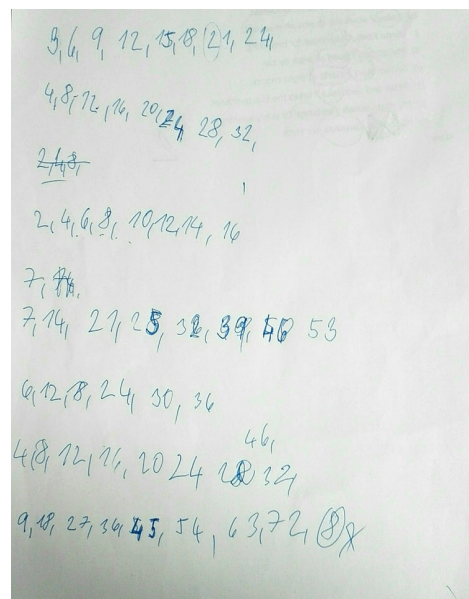 3, 6, 9, 12, 15, 18, 21, 24,
4, 8, 12, 16, 20, 24, 28, 32,
2, 4, 8,
2, 4, 6, 8, 10, 12, 14, 16
7, 14,
7, 14, 21, 25, 32, 39, 46 53
6, 12, 18, 24, 30, 36
46,
4, 8, 12, 16, 20 24 28 32,
9, 18, 27, 36, 45, 54, 63, 72, 8